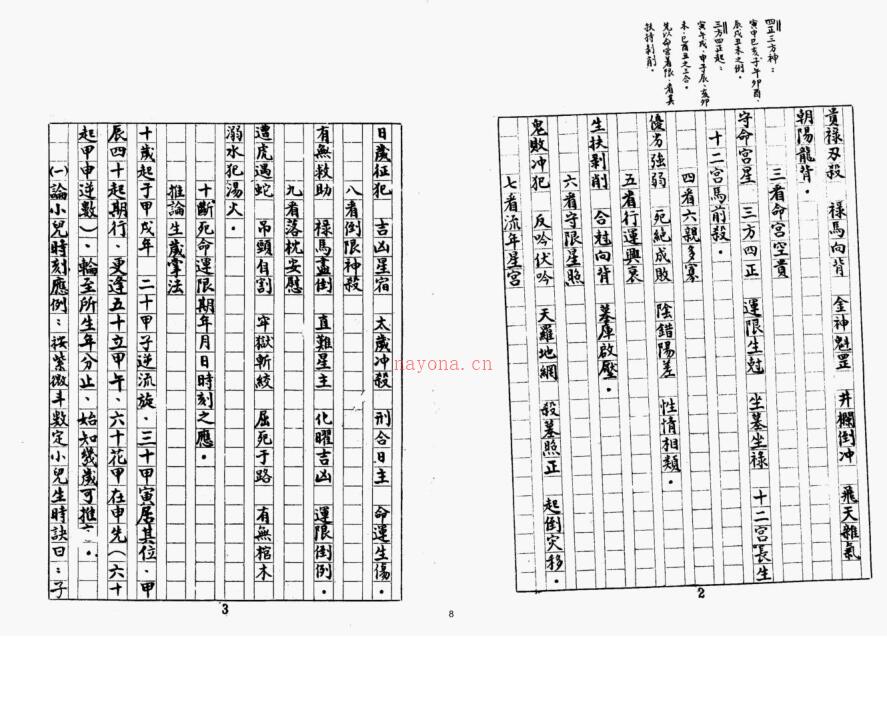 四正三方神：
寅申巳亥、子午卯酉、
辰戌丑未之例。
三方四正起：
寅午戌、申子辰、亥卯
未、巳酉丑之三合。
先以命宮看限、看其
扶持剝削。
貴祿刃殺　祿馬向背　金神魁罡　井欄倒冲　飛天雜氣
朝陽龍背。
三看命宮空貴
守命宮星　三方四正　運限生尅　坐墓坐祿　十二宮長生
十二宮馬前殺。
四看六親多寡
優劣強弱　死絕成敗　陰錯陽差　性情相類。
五看行運興衰
生扶剝削　合尅向背　墓庫啟壓。
六看守限星照
鬼敗冲犯　反吟伏吟　天羅地網　殺墓照正　起倒災移。
七看流年星宮
2
日歲征犯　吉凶星宿　太歲冲殺　刑合日主　命運生傷。
八看倒限神殺
有無救助　祿馬盡倒　直難星主　化曜吉凶　運限倒例。
九看落枕安慰
遭虎遇蛇　吊頸自割　牢獄斬絞　屈死于路　有無棺木
溺水犯湯火。
十斷死命運限期年月日時刻之應。
推論生歲掌法
十歲起于甲戌年　二十甲子逆流旋．三十甲寅居其位．甲
辰四十起期行．更逢五十立甲午、六十花甲在申先（六十
起甲申逆數）、輪至所生年分止、始知幾歲可推六。
㈠論小兒時刻應例：按紫微斗數定小兒生時訣曰：子
3
8
nayona.cn